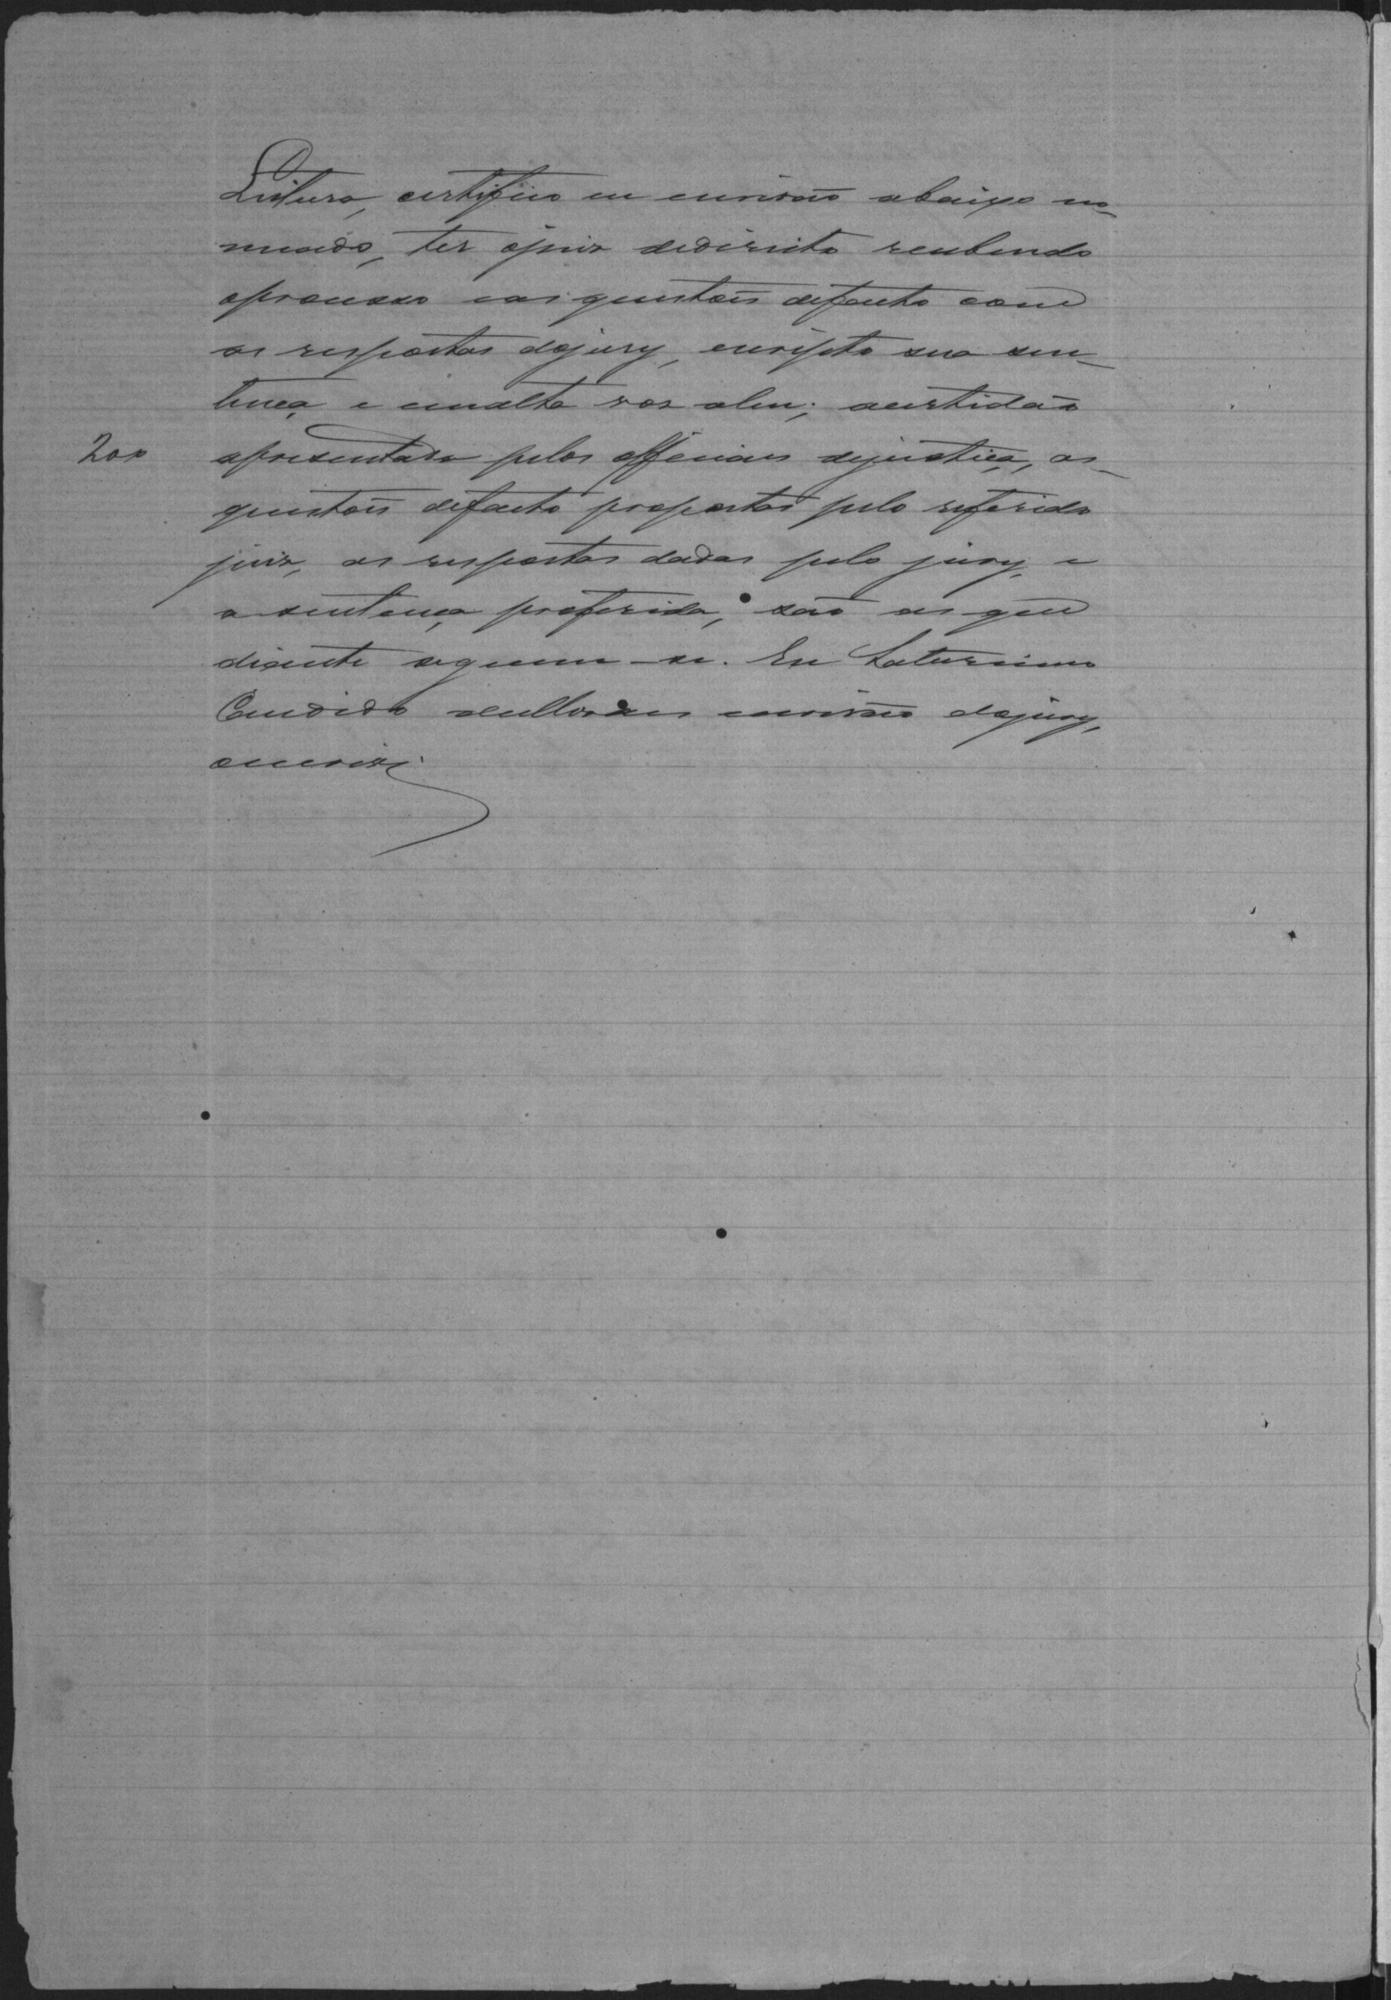 Leitura, certifico eu escrivão abaixo no-
meado, ter ojuiz dedireito recebendo
oprocesso eas questões defacto com
as respostas dojury, escripto sua sen-
tença e em alta voz aler; acertidão
200 apresentada pelos officiaes dejustiça, as
questões defacto propostas pelo referido
juiz, as respostas dadas pelo jury, e
a sentença proferida, são as que
diante seguem-se. Eu Saturnino
Candido escrivão dojury,
oescrivi.